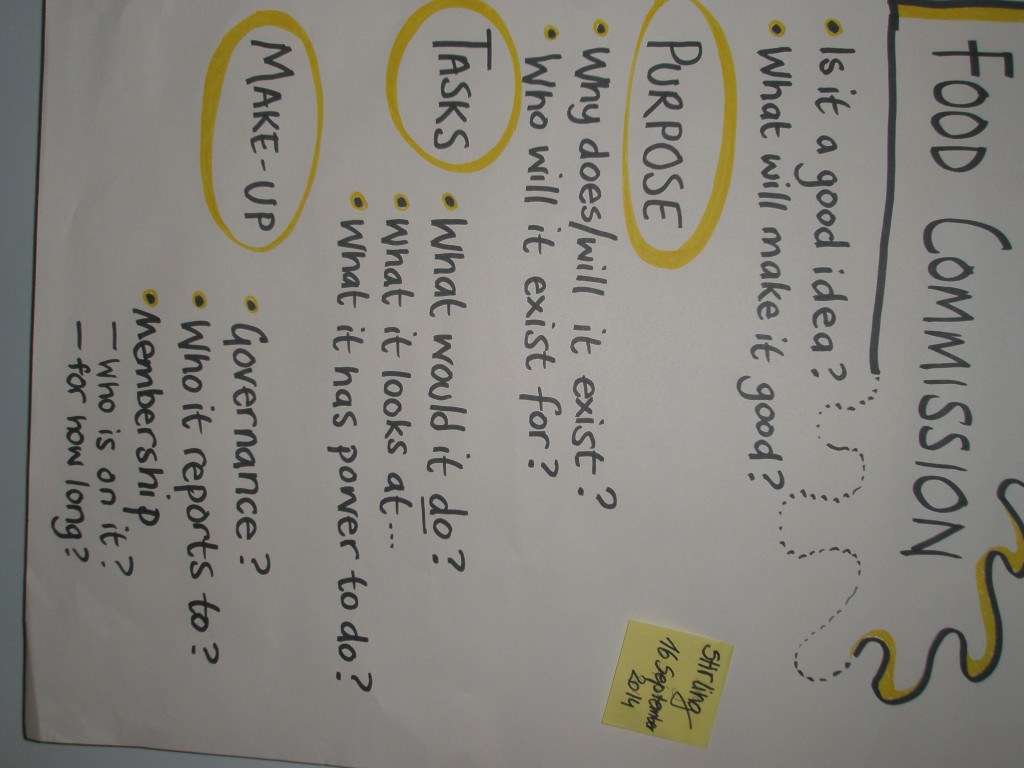 FOOD COMMISSION
• Is it a good idea?
• What will make it good?
PURPOSE
• Why does/will it exist?
• Who will it exist for?
TASKS
• What would it do?
• What it looks at...
• What it has power to do?
MAKE-UP
• Governance?
• Who it reports to?
• Membership
- who is on it?
- for how long?
Stirling
16 September
2014